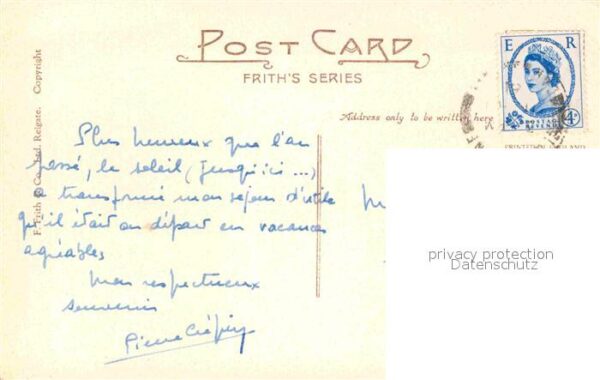 POST CARD
FRITH'S SERIES
E R
POSTAGE
REVENUE
4D
Address only to be written here
F. Frith & Co., Ltd. Reigate. Copyright
Plus heureux que l'an
passé, le soleil (jusqu'ici ...)
a transformé mon séjour d'utile
qu'il était au départ en vacances
agréables
Mon respectueux
souvenir
Pierre
M
privacy protection
Datenschutz